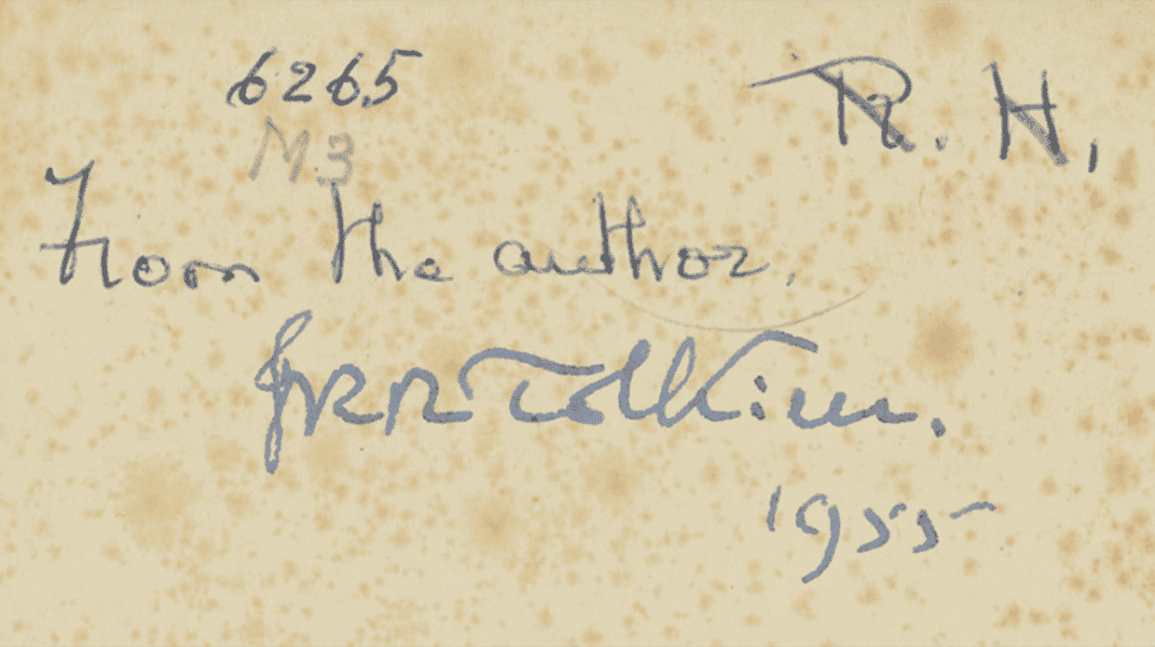 6265 R. H.
M3
From the author.
JRRTolkien.
1955